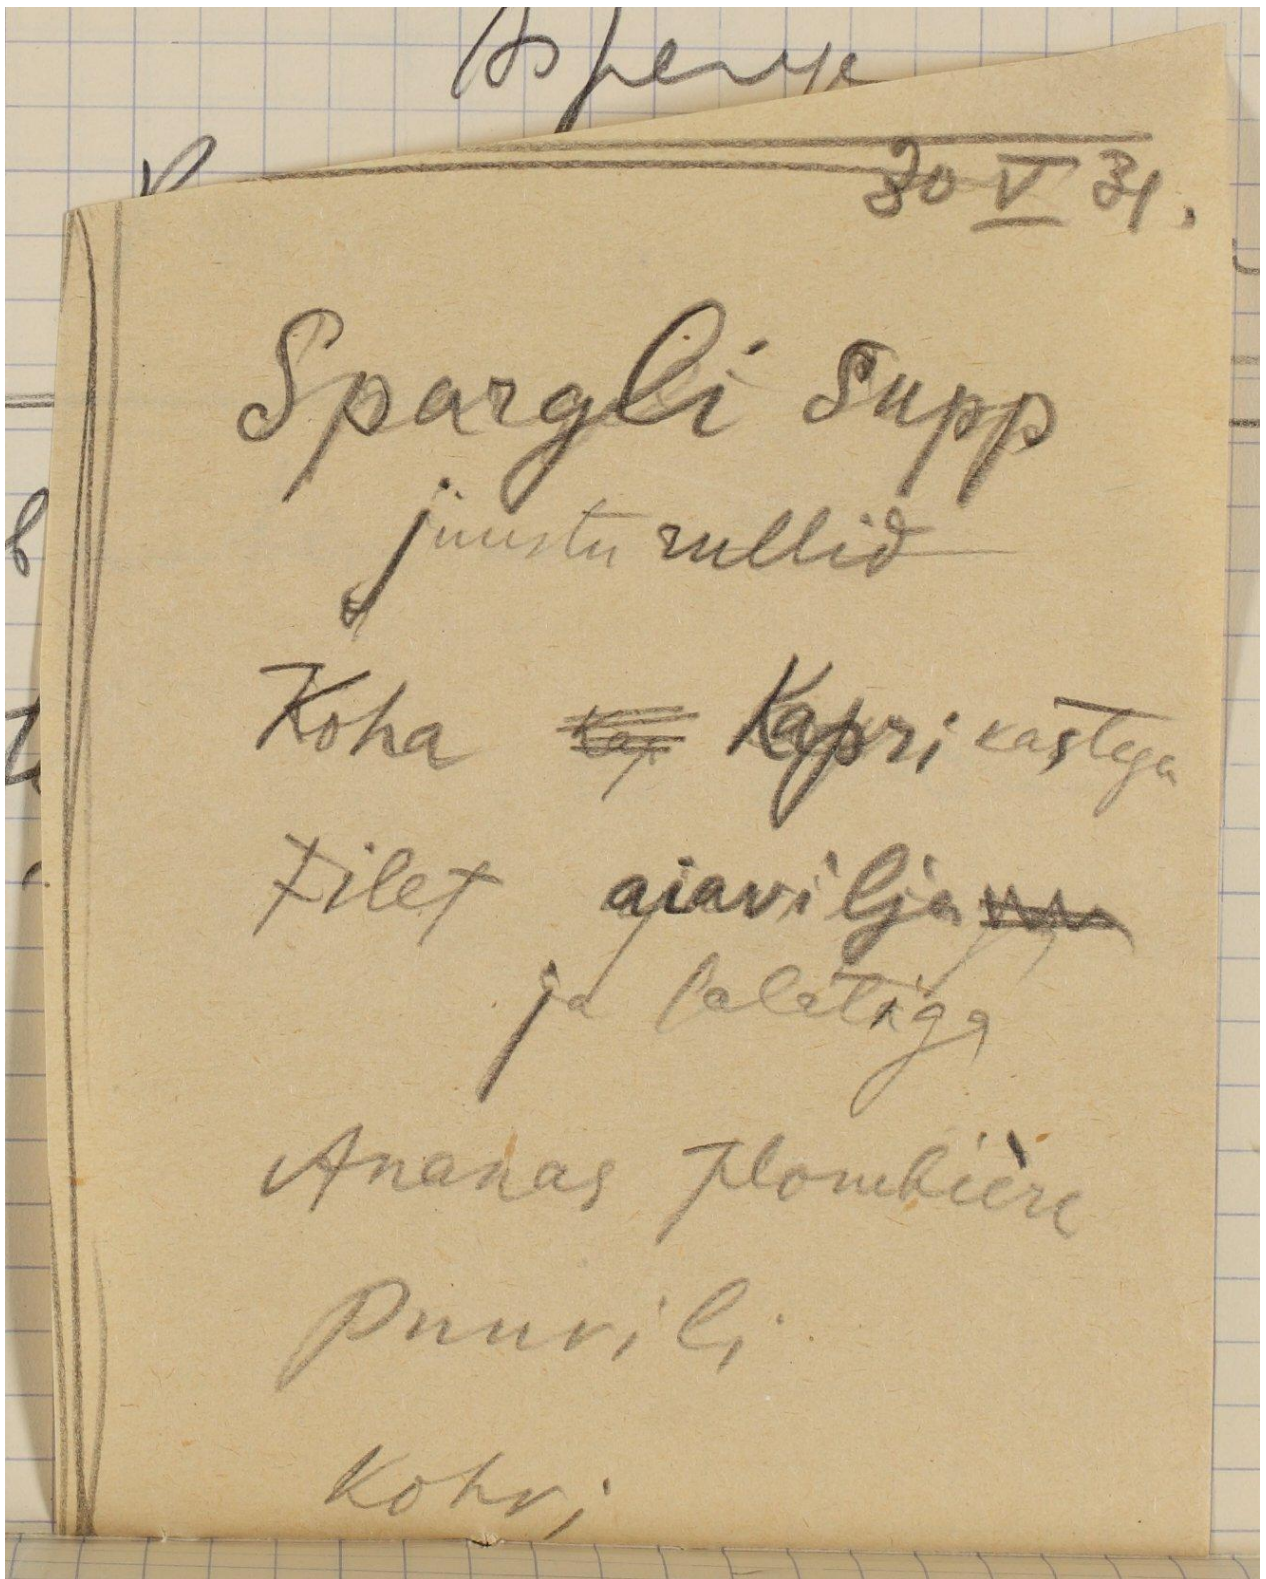 30 V 31.
Spargli Supp
juustu rullid
Koha Kapri kastega
Filet aiavilja
ja salatiga
Ananas plombière
Puuvili
Kohvi